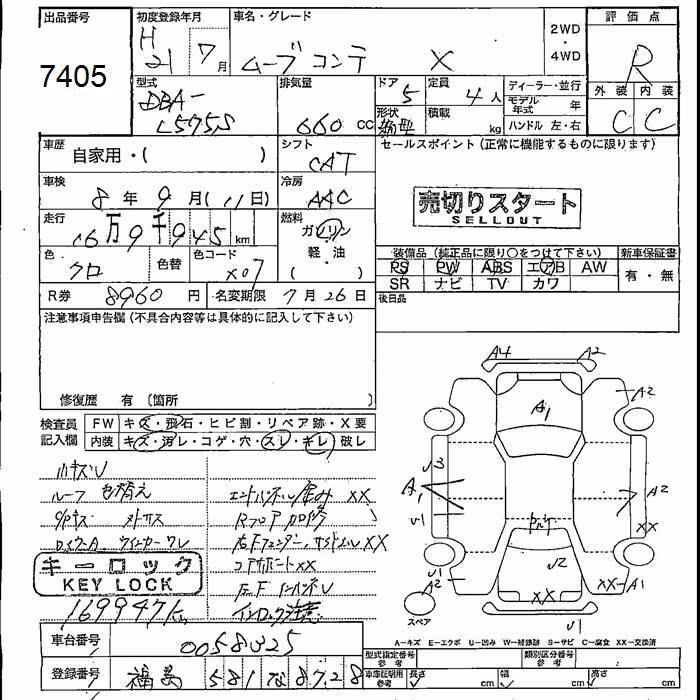 出品番号 初度登録年月 車名・グレード 評価点
7405 H 21 7月 ムーブコンテ X 2WD・4WD R
型式 排気量 ドア 定員 ディーラー・並行 外装 内装
DBA-L575S 660cc 5 4人 モデル年式 年 C C
形状 積載 kg ハンドル 左・右
車歴 シフト セールスポイント(正常に機能するものに限ります)
自家用・( ) CAT
車検 冷房
8年9月(11日) AAC
売切りスタート
SELLOUT
走行 燃料
16万9千945km ガソリン
軽油
( )
色 色替 色コード
クロ X07
装備品(純正品に限り○をつけて下さい) 新車保証書
PS PW ABS エアB AW 有・無
SR ナビ TV カワ
R券 8960円 名変期限 7月26日
後日品
注意事項申告欄(不具合内容等は具体的に記入して下さい)
修復歴 有(箇所
検査員 FW キズ・飛石・ヒビ割・リペア跡・X要
記入欄 内装 キズ・汚レ・コゲ・穴・スレ・キレ・破レ
小キズU
ルーフ 色褪え
XX
Rフロア
XX
XX
キーロック
KEY LOCK
169947km
A4 A2
A1 A2
U3
A1 A2
U1 XX
U2
U1 A2 XX XX A1
U1
スペア
A-キズ E-エクボ U-凹み W-補修跡 S-サビ C-腐食 XX-交換済
車台番号 0058325
型式指定番号 参考 類別区分番号 参考
登録番号 福島 581 な 8728
車庫証明用 参考 長さ cm 幅 cm 高さ cm